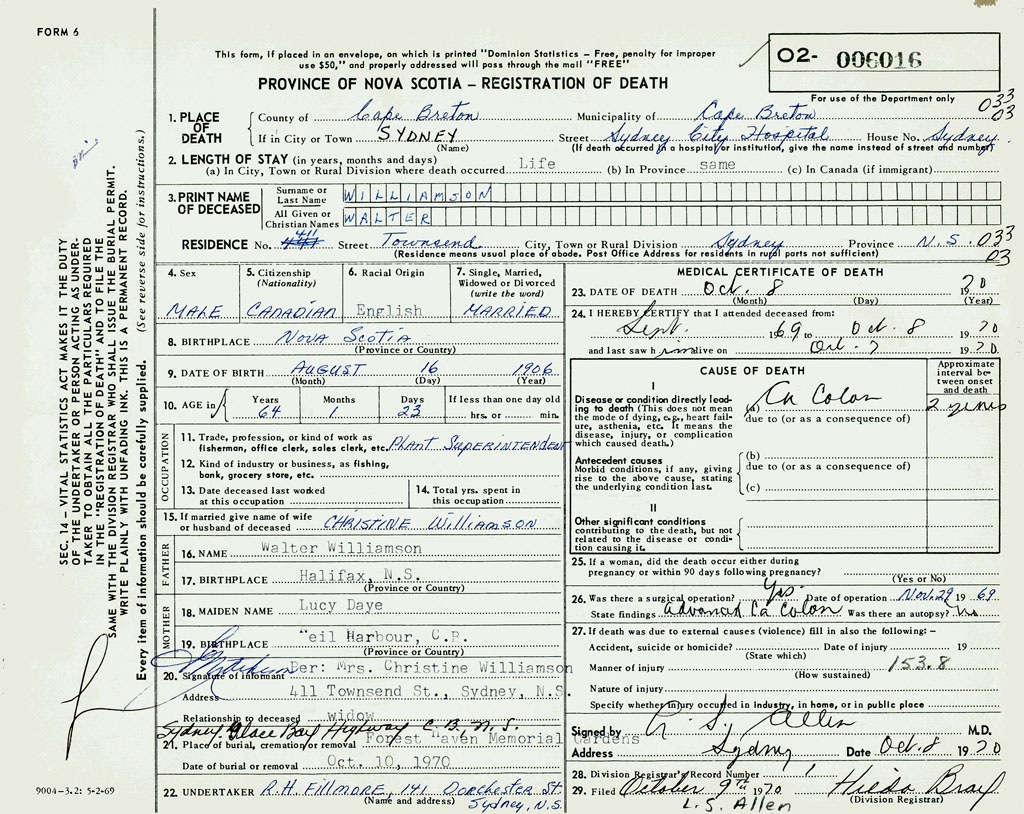 FORM 6
This form, if placed in an envelope, on which is printed "Dominion Statistics – Free, penalty for improper
use $50," and properly addressed will pass through the mail "FREE"
O2- 006016
PROVINCE OF NOVA SCOTIA – REGISTRATION OF DEATH
For use of the Department only
033
03
1. PLACE OF DEATH County of Cape Breton Municipality of Cape Breton
If in City or Town SYDNEY Street Sydney City Hospital House No. Sydney
(Name) (If death occurred in a hospital or institution, give the name instead of street and number)
2. LENGTH OF STAY (in years, months and days)
(a) In City, Town or Rural Division where death occurred Life (b) In Province same (c) In Canada (if immigrant)
3. PRINT NAME OF DECEASED Surname or Last Name WILLIAMSON
All Given or Christian Names WALTER
RESIDENCE No. 411 Street Townsend City, Town or Rural Division Sydney Province N.S. 033
(Residence means usual place of abode. Post Office Address for residents in rural parts not sufficient) 03
4. Sex 5. Citizenship (Nationality) 6. Racial Origin 7. Single, Married, Widowed or Divorced (write the word)
MALE CANADIAN English MARRIED
8. BIRTHPLACE NOVA SCOTIA
(Province or Country)
9. DATE OF BIRTH AUGUST 16 1906
(Month) (Day) (Year)
10. AGE in Years Months Days If less than one day old
64 1 23 hrs. or min.
OCCUPATION
11. Trade, profession, or kind of work as
fisherman, office clerk, sales clerk, etc. PLANT SUPERINTENDENT
12. Kind of industry or business, as fishing,
bank, grocery store, etc.
13. Date deceased last worked at this occupation 14. Total yrs. spent in this occupation
15. If married give name of wife
or husband of deceased CHRISTINE WILLIAMSON
FATHER
16. NAME Walter Williamson
17. BIRTHPLACE Halifax, N.S.
(Province or Country)
MOTHER
18. MAIDEN NAME Lucy Daye
19. BIRTHPLACE "eil Harbour, C.B.
(Province or Country)
20. Signature of informant Per: Mrs. Christine Williamson
Address 411 Townsend St., Sydney, N.S.
Relationship to deceased widow
Sydney Glace Bay Highway C.B., N.S.
21. Place of burial, cremation or removal Forest "aven Memorial Gardens
Date of burial or removal Oct. 10, 1970
22. UNDERTAKER R.H. FILLMORE, 141 DORCHESTER ST.
(Name and address) SYDNEY, N.S.
MEDICAL CERTIFICATE OF DEATH
23. DATE OF DEATH Oct. 8 1970
(Month) (Day) (Year)
24. I HEREBY CERTIFY that I attended deceased from:
Sept. 1969 to Oct. 8 1970
and last saw him alive on Oct. 7 1970
CAUSE OF DEATH
Approximate interval between onset and death
I
Disease or condition directly leading to death (This does not mean the mode of dying, e.g., heart failure, asthenia, etc. It means the disease, injury, or complication which caused death.)
(a) Ca Colon 2 years
due to (or as a consequence of)
Antecedent causes
Morbid conditions, if any, giving rise to the above cause, stating the underlying condition last.
(b)
due to (or as a consequence of)
(c)
II
Other significant conditions
contributing to the death, but not related to the disease or condition causing it.
25. If a woman, did the death occur either during
pregnancy or within 90 days following pregnancy?
(Yes or No)
26. Was there a surgical operation? Yes Date of operation Nov. 29 1969
State findings advanced Ca Colon Was there an autopsy? no
27. If death was due to external causes (violence) fill in also the following: –
Accident, suicide or homicide? Date of injury 19
(State which)
Manner of injury 153.8
(How sustained)
Nature of injury
Specify whether injury occurred in industry, in home, or in public place
Signed by R. S. Allen M.D.
Address Sydney Date Oct. 8 1970
28. Division Registrar's Record Number
29. Filed October 9th 1970 Hilda Bray
L.S. Allen (Division Registrar)
SEC. 14 – VITAL STATISTICS ACT MAKES IT THE DUTY
OF THE UNDERTAKER OR PERSON ACTING AS UNDER-
TAKER TO OBTAIN ALL THE PARTICULARS REQUIRED
IN THE "REGISTRATION OF DEATH" AND TO FILE THE
SAME WITH THE DIVISION REGISTRAR WHO SHALL ISSUE THE BURIAL PERMIT.
WRITE PLAINLY WITH UNFADING INK. THIS IS A PERMANENT RECORD.
Every item of information should be carefully supplied. (See reverse side for instructions.)
9004-3.2: 5-2-69